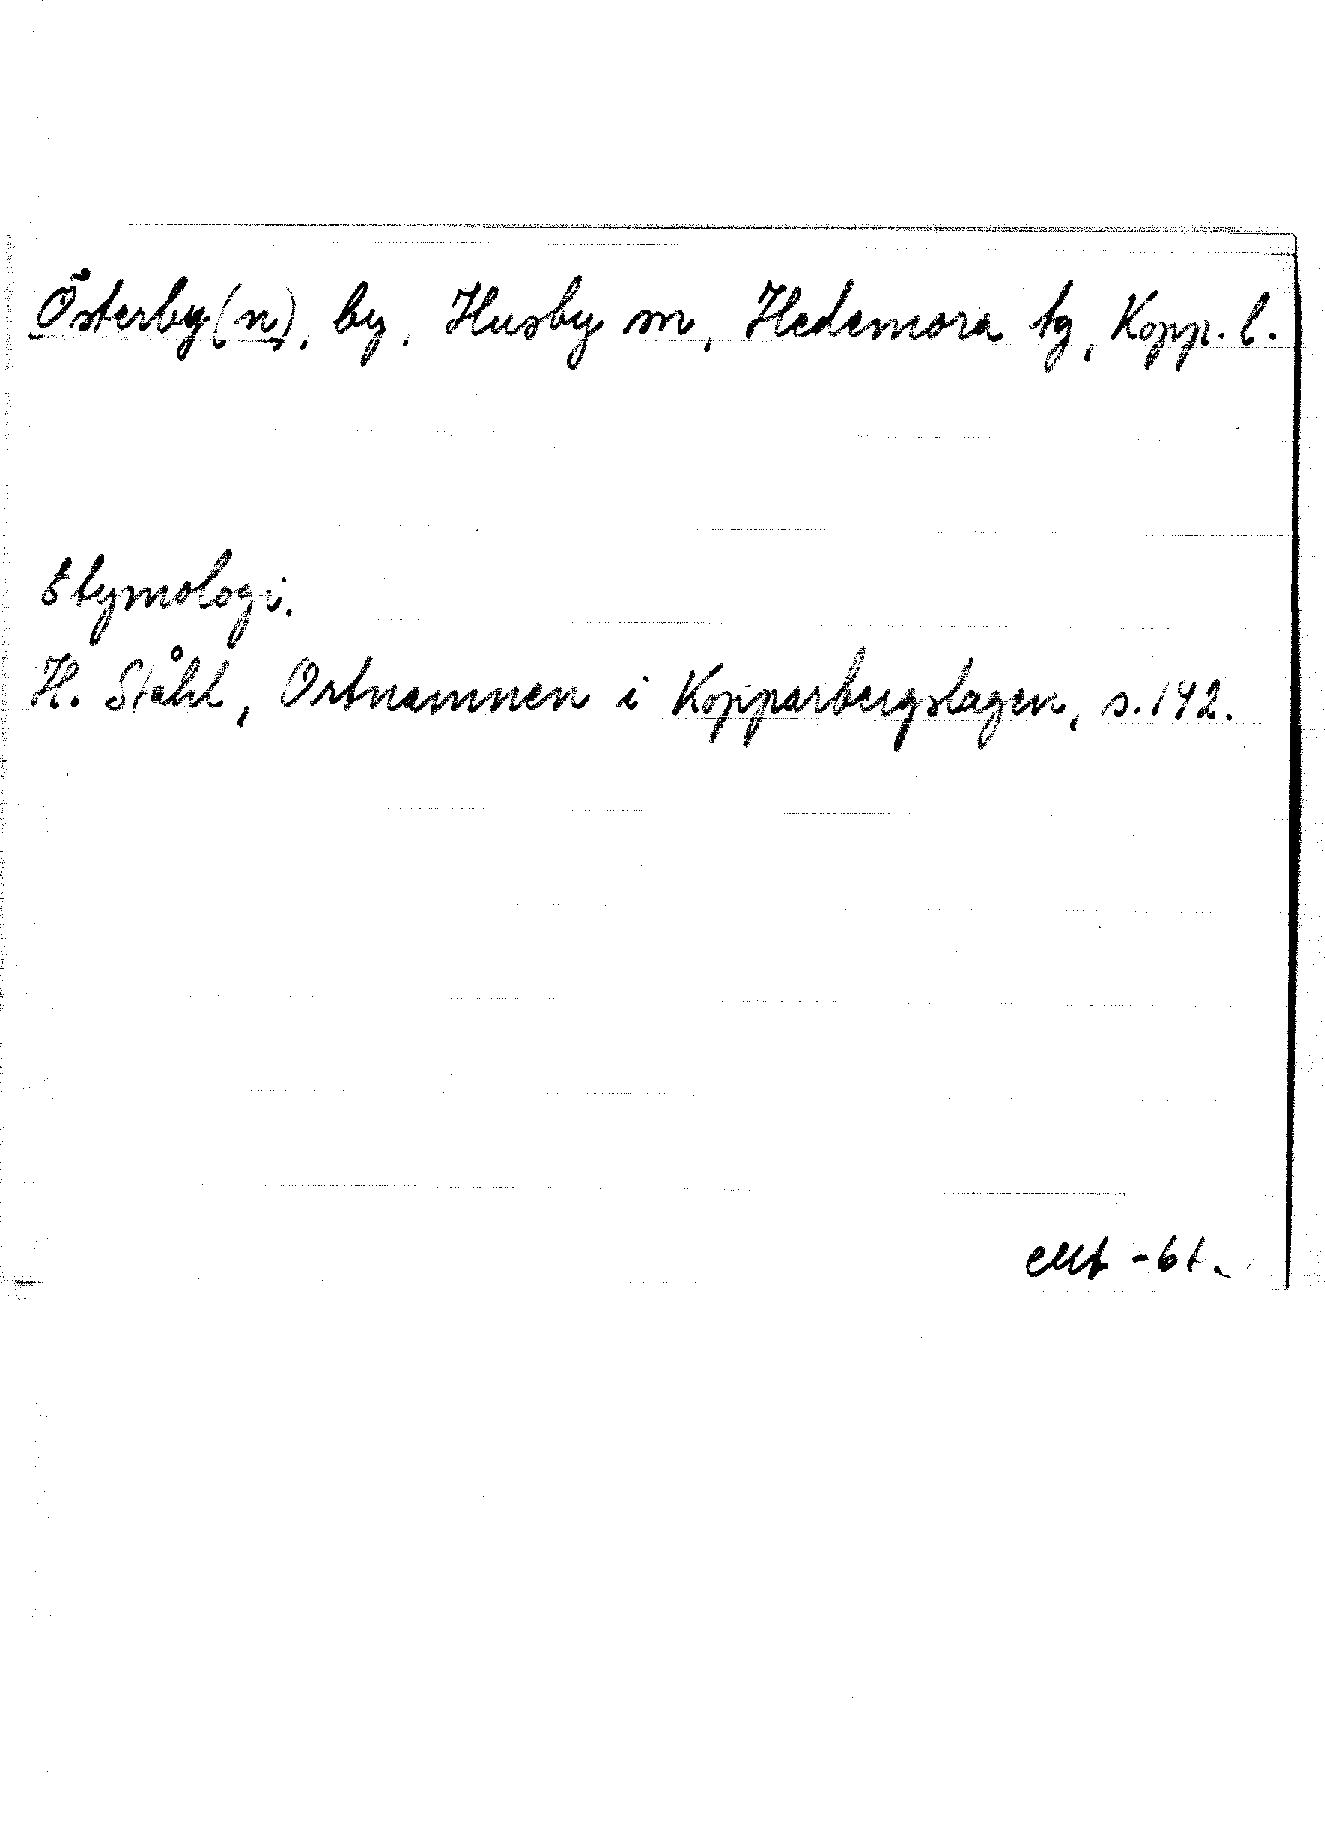 Österby(n), by, Husby sn, Hedemora tg, Kopp. l.
Etymologi.
H. Ståhl, Ortnamnen i Kopparbergslagen, s. 142.
-61.